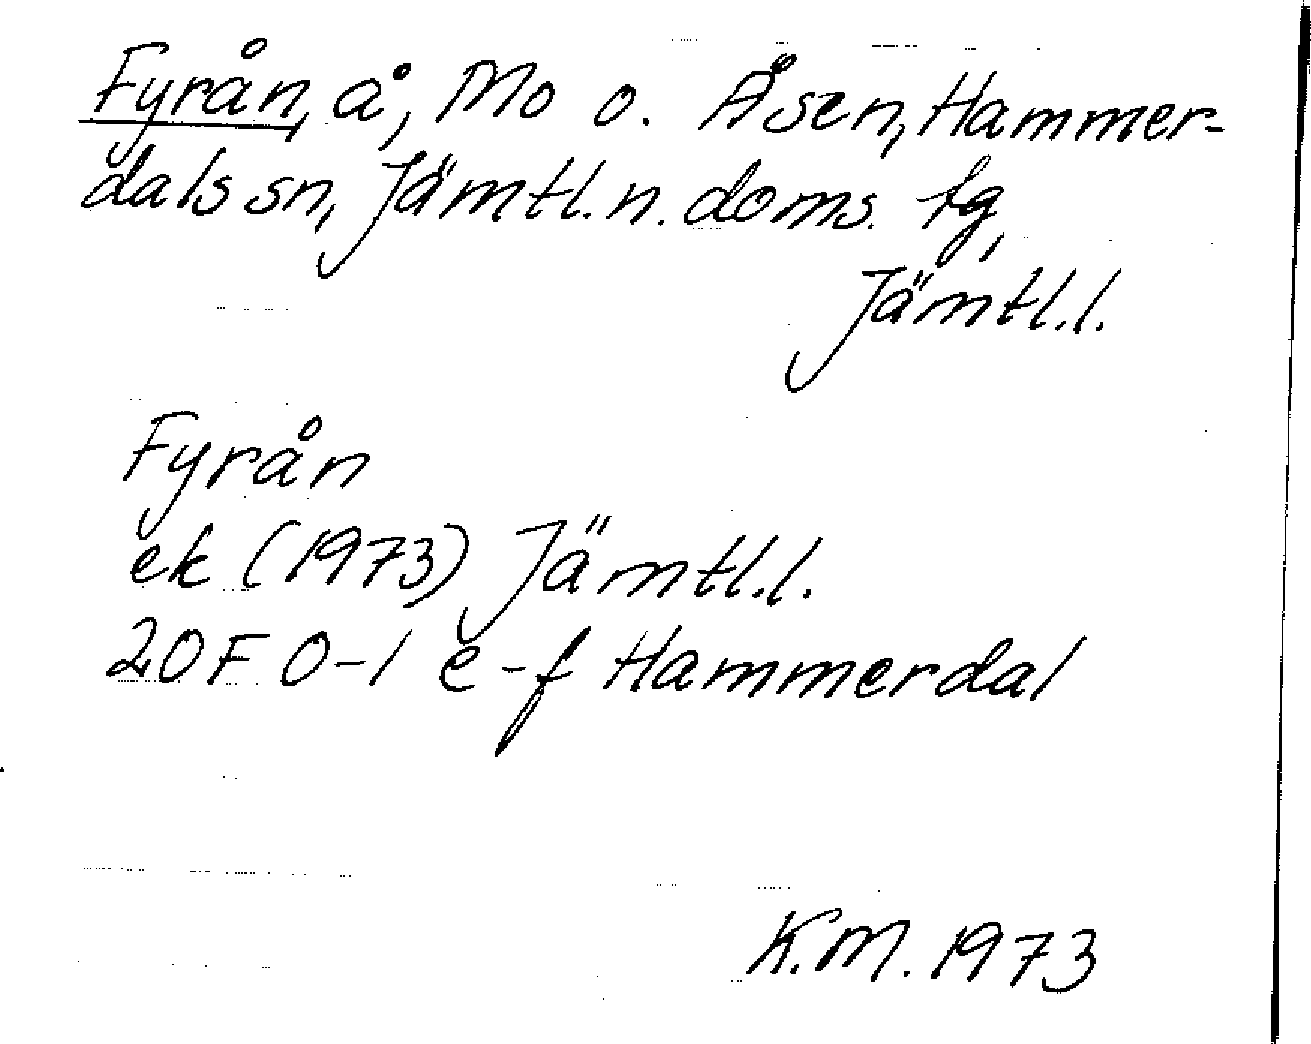 Fyrån, å, Mo o. Åsen, Hammer-
dals sn, Jämtl. n. doms. tg,
Jämtl. l.
Fyrån
ek (1973) Jämtl. l.
20F 0-1 e-f Hammerdal
K.M. 1973